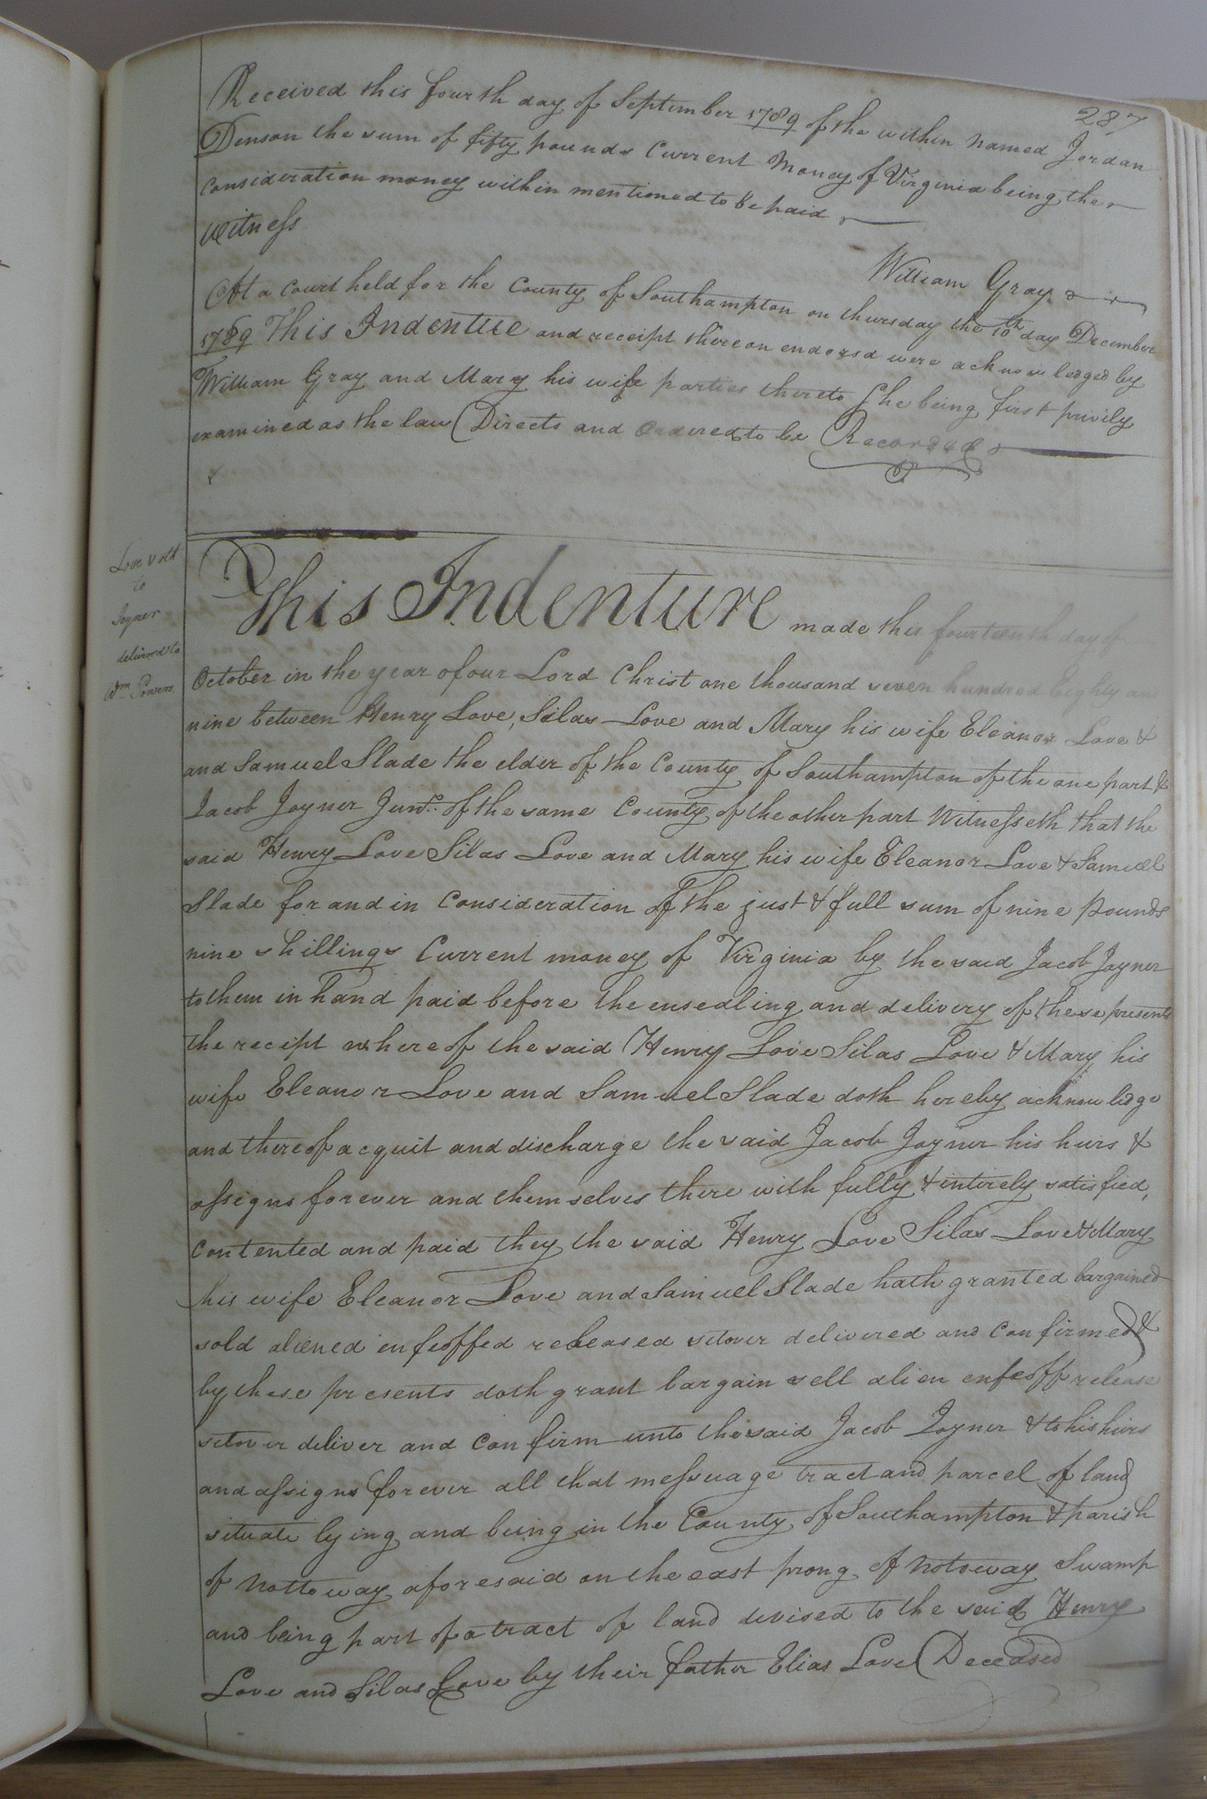 287
Received this fourth day of September 1789 of the within named Jordan
Denson the sum of fifty pounds Current Money of Virginia being the
consideration money within mentioned to be paid
Witness
William Gray
At a court held for the County of Southampton on thursday the 10th day December
1789 This Indenture and receipt thereon endorsd were acknowledged by
William Gray and Mary his wife parties thereto she being first privily
examined as the law Directs and Ordered to be Recorded
Love &
to
Joyner
delivered to
Wm
This Indenture made this fourteenth day of
October in the year of our Lord Christ one thousand seven hundred Eighty an
nine between Henry Love, Silas Love and Mary his wife Eleanor Love &
and Samuel Slade the elder of the County of Southampton of the one part &
Jacob Joyner Junr. of the same County of the other part Witnesseth that the
said Henry Love Silas Love and Mary his wife Eleanor Love & Samuel
Slade for and in Consideration of the just & full sum of nine pounds
nine shillings Current money of Virginia by the said Jacob Joyner
to them in hand paid before the ensealing and delivery of these presents
the recipt whereof the said Henry Love Silas Love & Mary his
wife Eleanor Love and Samuel Slade doth hereby acknowledge
and thereof acquit and discharge the said Jacob Joyner his heirs &
assigns forever and themselves there with fully & intirely satisfied,
contented and paid they the said Henry Love Silas Love & Mary
his wife Eleanor Love and Samuel Slade hath granted bargained
sold aliened infeoffed released setover delivered and confirmed &
by these presents doth grant bargain sell alien enfeoff release
setover deliver and confirm unto the said Jacob Joyner & to his heirs
and assigns forever all that messuage tract and parcel of land
situate lying and being in the County of Southampton & parish
of Nottoway aforesaid on the east prong of Notoway Swamp
and being part of a tract of land devised to the said Henry
Love and Silas Love by their father Elias Love Deceased